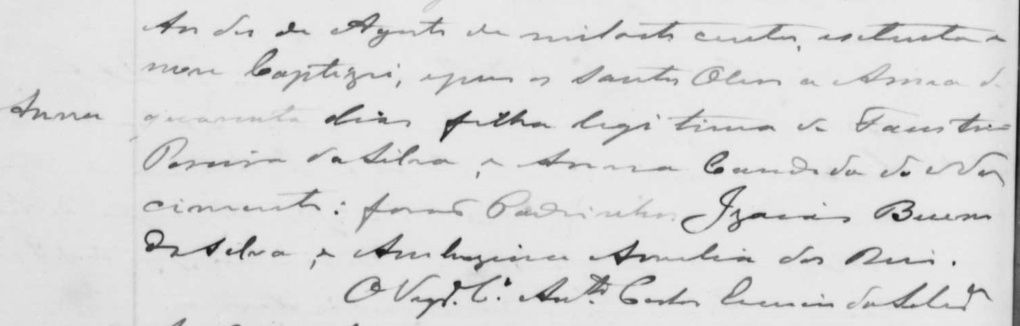 Aos des de Agosto de mil oito centos, e setenta e
nove baptizei, e pus os Santos Oleos a Anna de
Anna
quarenta dias filha legitima de Faustino
Pereira da Silva, e Anna Candida do Nas
cimento: forão Padrinhos Izaias Bueno
da Silva, e Ambrozina Amelia dos Reis.
O Vigr.º C.º Ant.º Carlos da